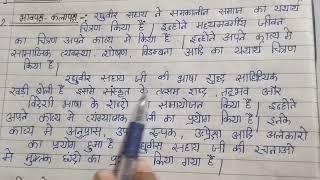 2. भावपक्ष- कलापक्ष - रघुवीर सहाय ने समकालीन समाज का यथार्थ
चित्रण किया है। इन्होंने मध्यमवर्गीय जीवन
का चित्रण अपने काव्य में किया है। इन्होंने अपने काव्य में
सामाजिक व्यवस्था, शोषण, विडम्बना आदि का यथार्थ चित्रण
किया है।
रघुवीर सहाय जी की भाषा शुद्ध साहित्यिक
खड़ी बोली है इसमें संस्कृत के तत्सम शब्द, तद्भव और
विदेशी भाषा के शब्दों समायोजन किया है। इन्होंने
अपने काव्य में व्यंग्यात्मक जी का प्रयोग किया है। इनके
काव्य में अनुप्रास, रूपक, उत्प्रेक्षा आदि अलंकारों
का प्रयोग हुआ है। रघुवीर सहाय जी की रचनाओं
में मुक्तक छंदों का किया गया है।